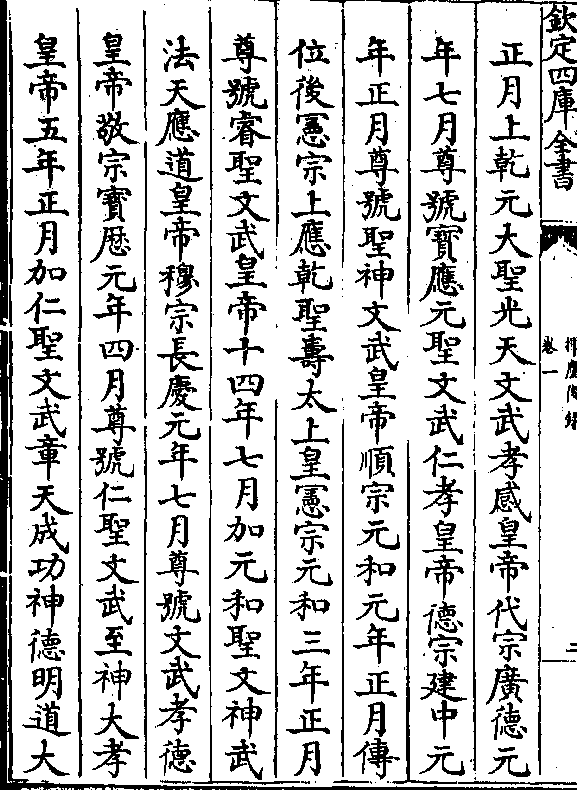 欽定四庫全書
卷一
正月上乾元大聖光天文武孝感皇帝代宗廣德元
年七月尊號寳應元聖文武仁孝皇帝德宗建中元
年正月尊號聖神文武皇帝順宗元和元年正月傳
位後憲宗上應乾聖壽太上皇憲宗元和三年正月
尊號睿聖文武皇帝十四年七月加元和聖文神武
法天應道皇帝穆宗長慶元年七月尊號文武孝德
皇帝敬宗寶厯元年四月尊號仁聖文武至神大孝
皇帝五年正月加仁聖文武章天成功神德明道大